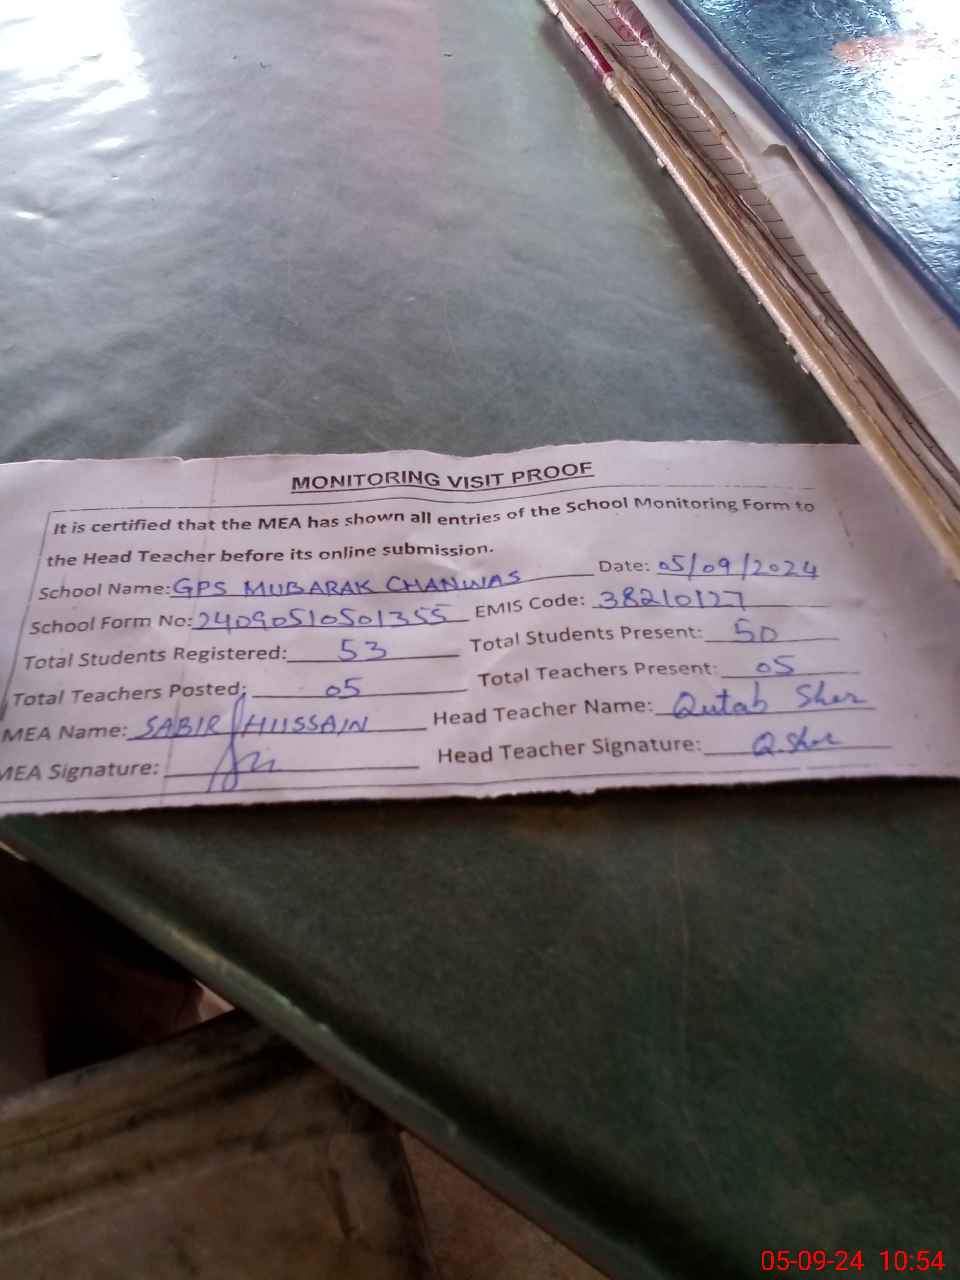 MONITORING VISIT PROOF
It is certified that the MEA has shown all entries of the School Monitoring Form to
the Head Teacher before its online submission.
School Name: GPS MUBARAK CHANWAS Date: 05/09/2024
School Form No: 24090510501355 EMIS Code: 38210127
Total Students Registered: 53 Total Students Present: 50
Total Teachers Posted: 05 Total Teachers Present: 05
MEA Name: SABIR HUSSAIN Head Teacher Name: Qutab Sher
MEA Signature: Head Teacher Signature: Q.Sher
05-09-24 10:54